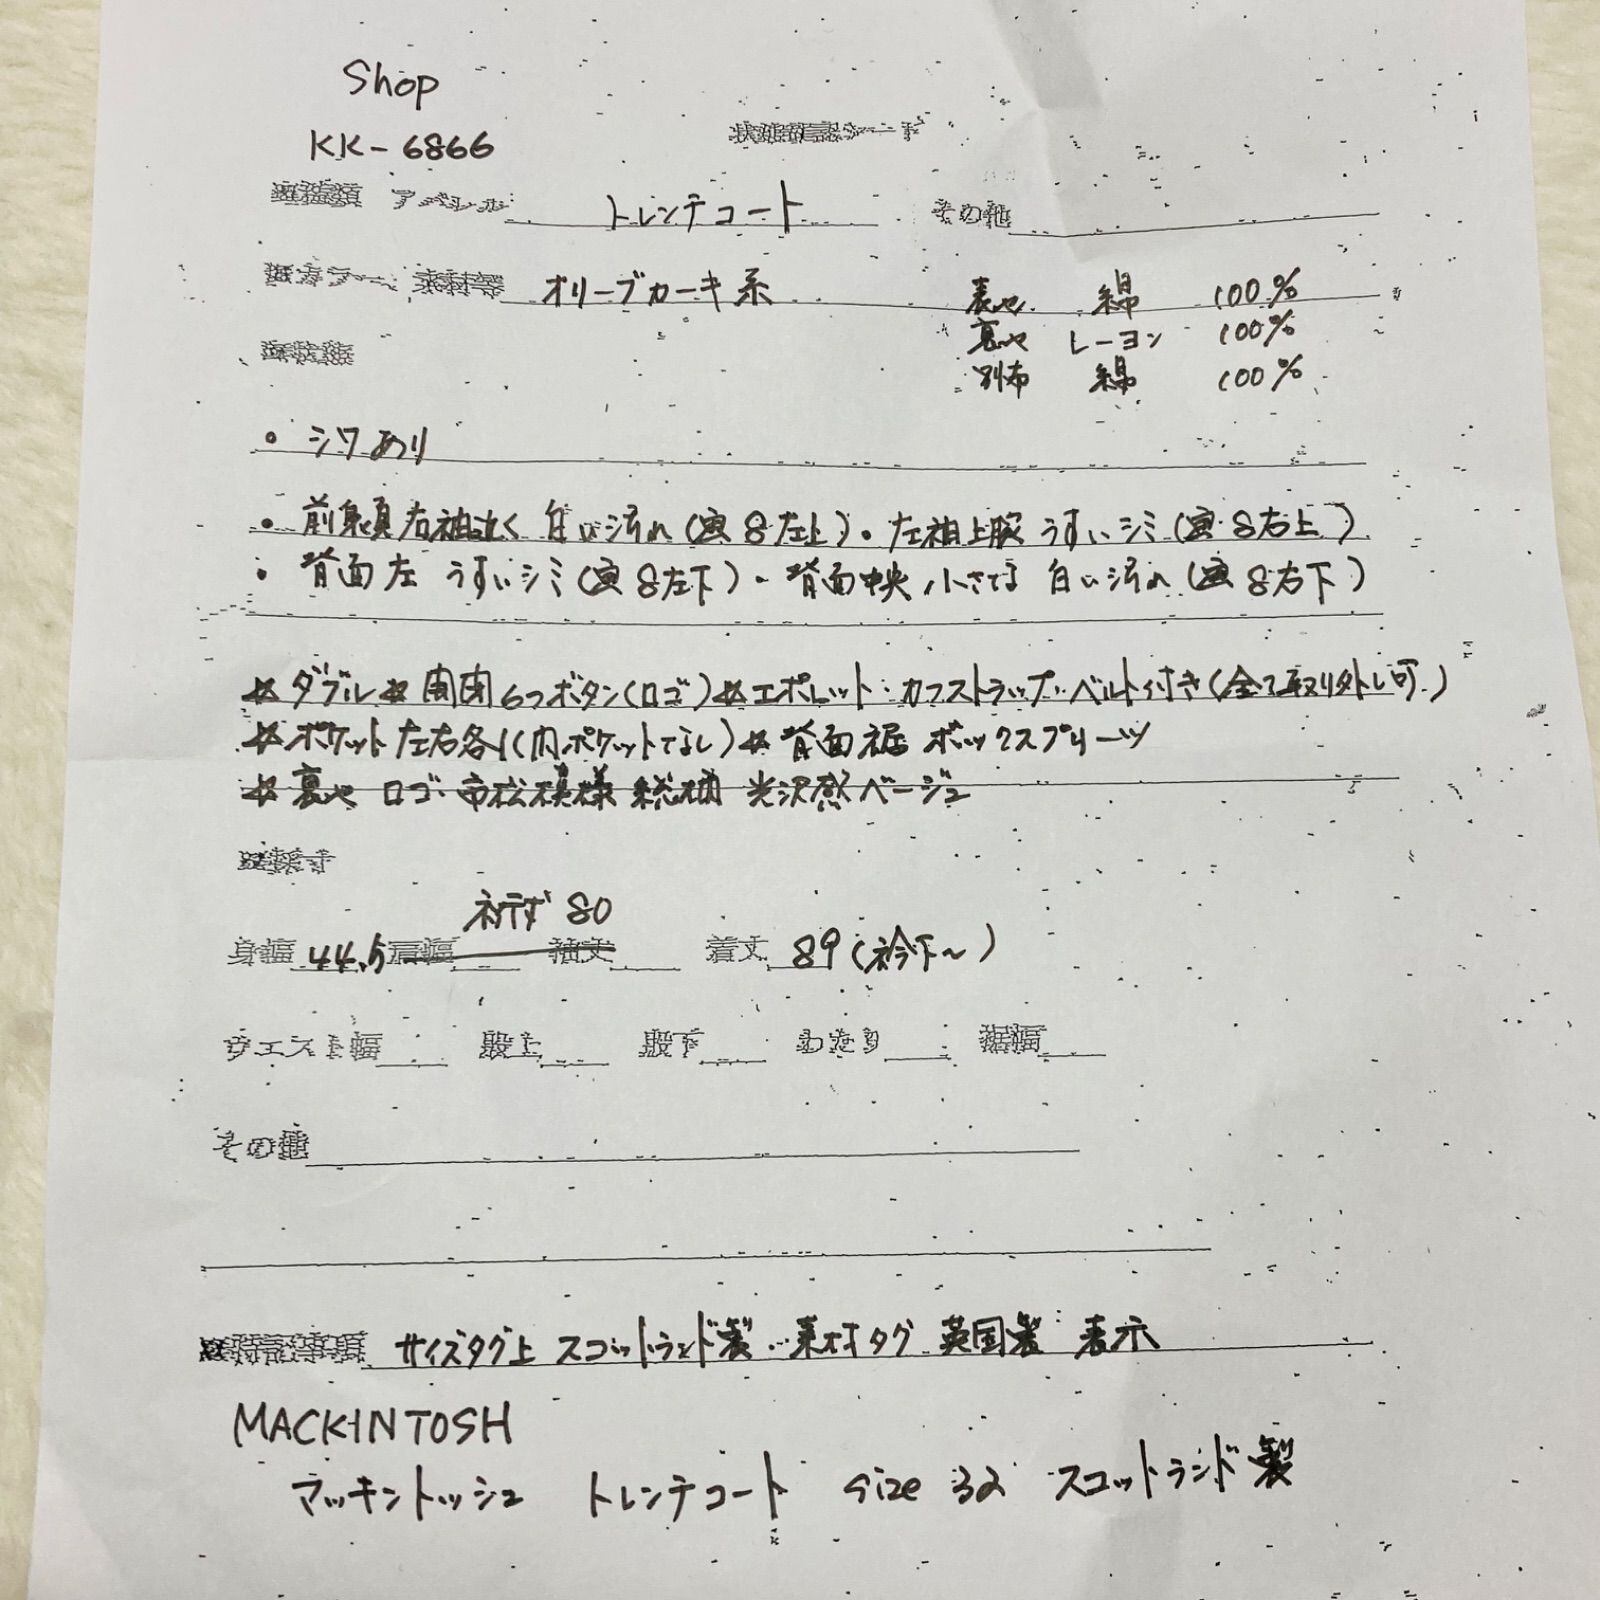 Shop
KK-6866
状態確認シート
アパレル トレンチコート その他
カラー・素材等 オリーブカーキ系 表地 綿 100%
裏地 レーヨン 100%
別布 綿 100%
・シワあり
・前身頃右袖近く 白い汚れ(写8左上)・左袖上腕 うすいシミ(写8右上)
・背面左 うすいシミ(写8左下)・背面中央 小さな白い汚れ(写8右下)
*ダブル*開閉6つボタン(ロゴ)*エポレット・カフストラップ・ベルト付き(全て取り外し可)
*ポケット左右各1(内ポケットなし)*背面裾 ボックスプリーツ
*裏地 ロゴ・市松模様 総柄 光沢感ベージュ
採寸
ネックテ゛ 80
身幅 44.5 肩幅 袖丈 着丈 89(衿下〜)
ウエスト幅 股上 股下 わたり 裾幅
その他
特記事項 サイズタグ上 スコットランド製・素材タグ 英国製 表示
MACKINTOSH
マッキントッシュ トレンチコート size 32 スコットランド製